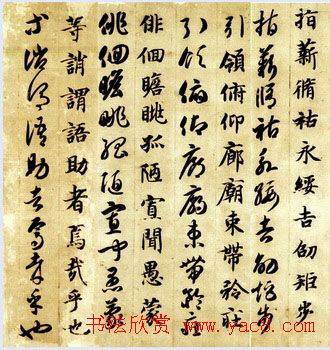 指薪脩祜永綏吉劭矩步
指薪脩祜永綏吉劭矩步
引領俯仰廊廟束帶矜莊
引領俯仰廊廟束帶矜莊
徘徊瞻眺孤陋寡聞愚蒙
徘徊瞻眺孤陋寡聞愚蒙
等誚謂語助者焉哉乎也
等誚謂語助者焉哉乎也
书法欣赏
www.yac8.com